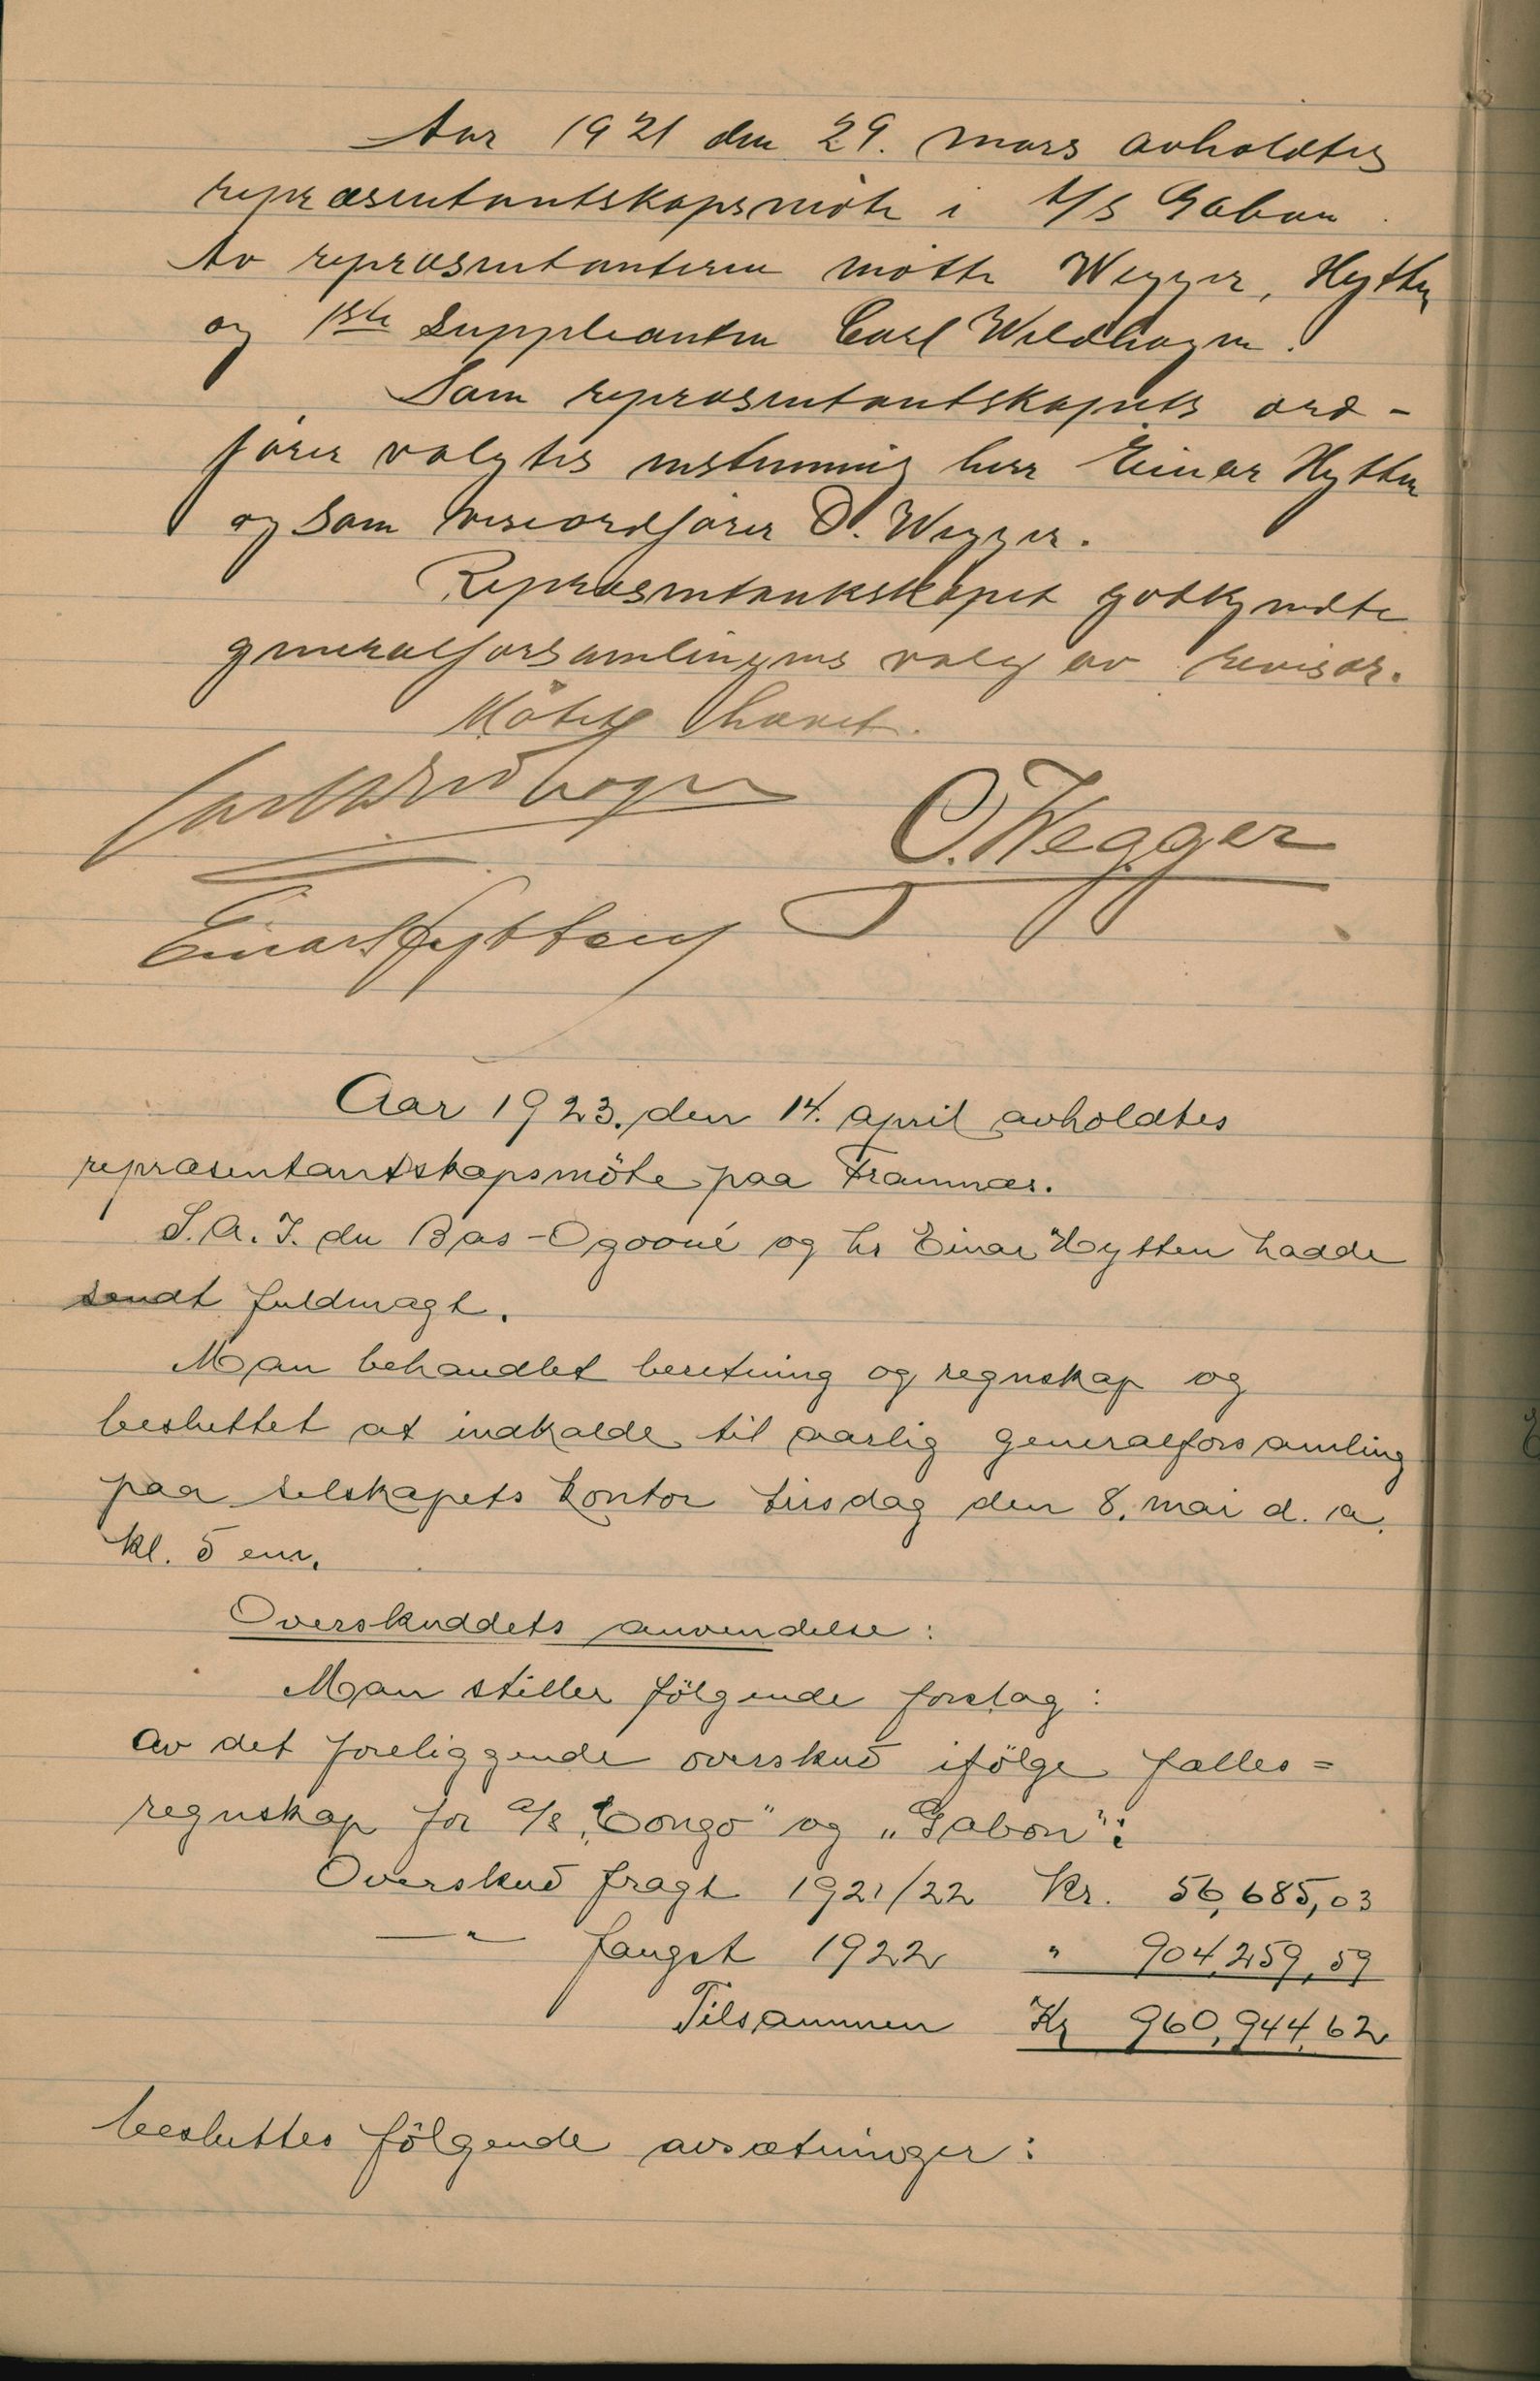 Aar 1921 den 29. mars avholdtes
repræsentantskapsmöte i A/S Gabon.
Av repræsentanterne mötte Wegger, Hytten
og 1ste suppleanten Carl Wildhagen.
Som repræsentantskapets ord-
fører valgtes enstemmig herr Einar Hytten
og som viseordfører O. Wegger.
Repræsentantskapet godkjendte
generalforsamlingens valg av revisor.
Mötet hævet.
Carl Wildhagen
O. Wegger
Einar Hytten
Aar 1923, den 14. april avholdtes
repræsentantskapsmöte paa Framnæs.
S.A.I. du Bas-Ogooué og hr Einar Hytten hadde
sendt fuldmagt.
Man behandlet beretning og regnskap og
besluttet at indkalde til aarlig generalforsamling
paa selskapets kontor tirsdag den 8. mai d. a.
kl. 5 em.
Overskuddets anvendelse:
Man stiller fölgende forslag:
Av det foreliggende overskud ifölge fælles=
regnskap for a/s „Congo" og „Gabon":
Overskud fragt 1921/22 Kr. 56,685,03
—"— fangst 1922 " 904,259,59
Tilsammen Kr 960,944,62
besluttes fölgende avsætninger: